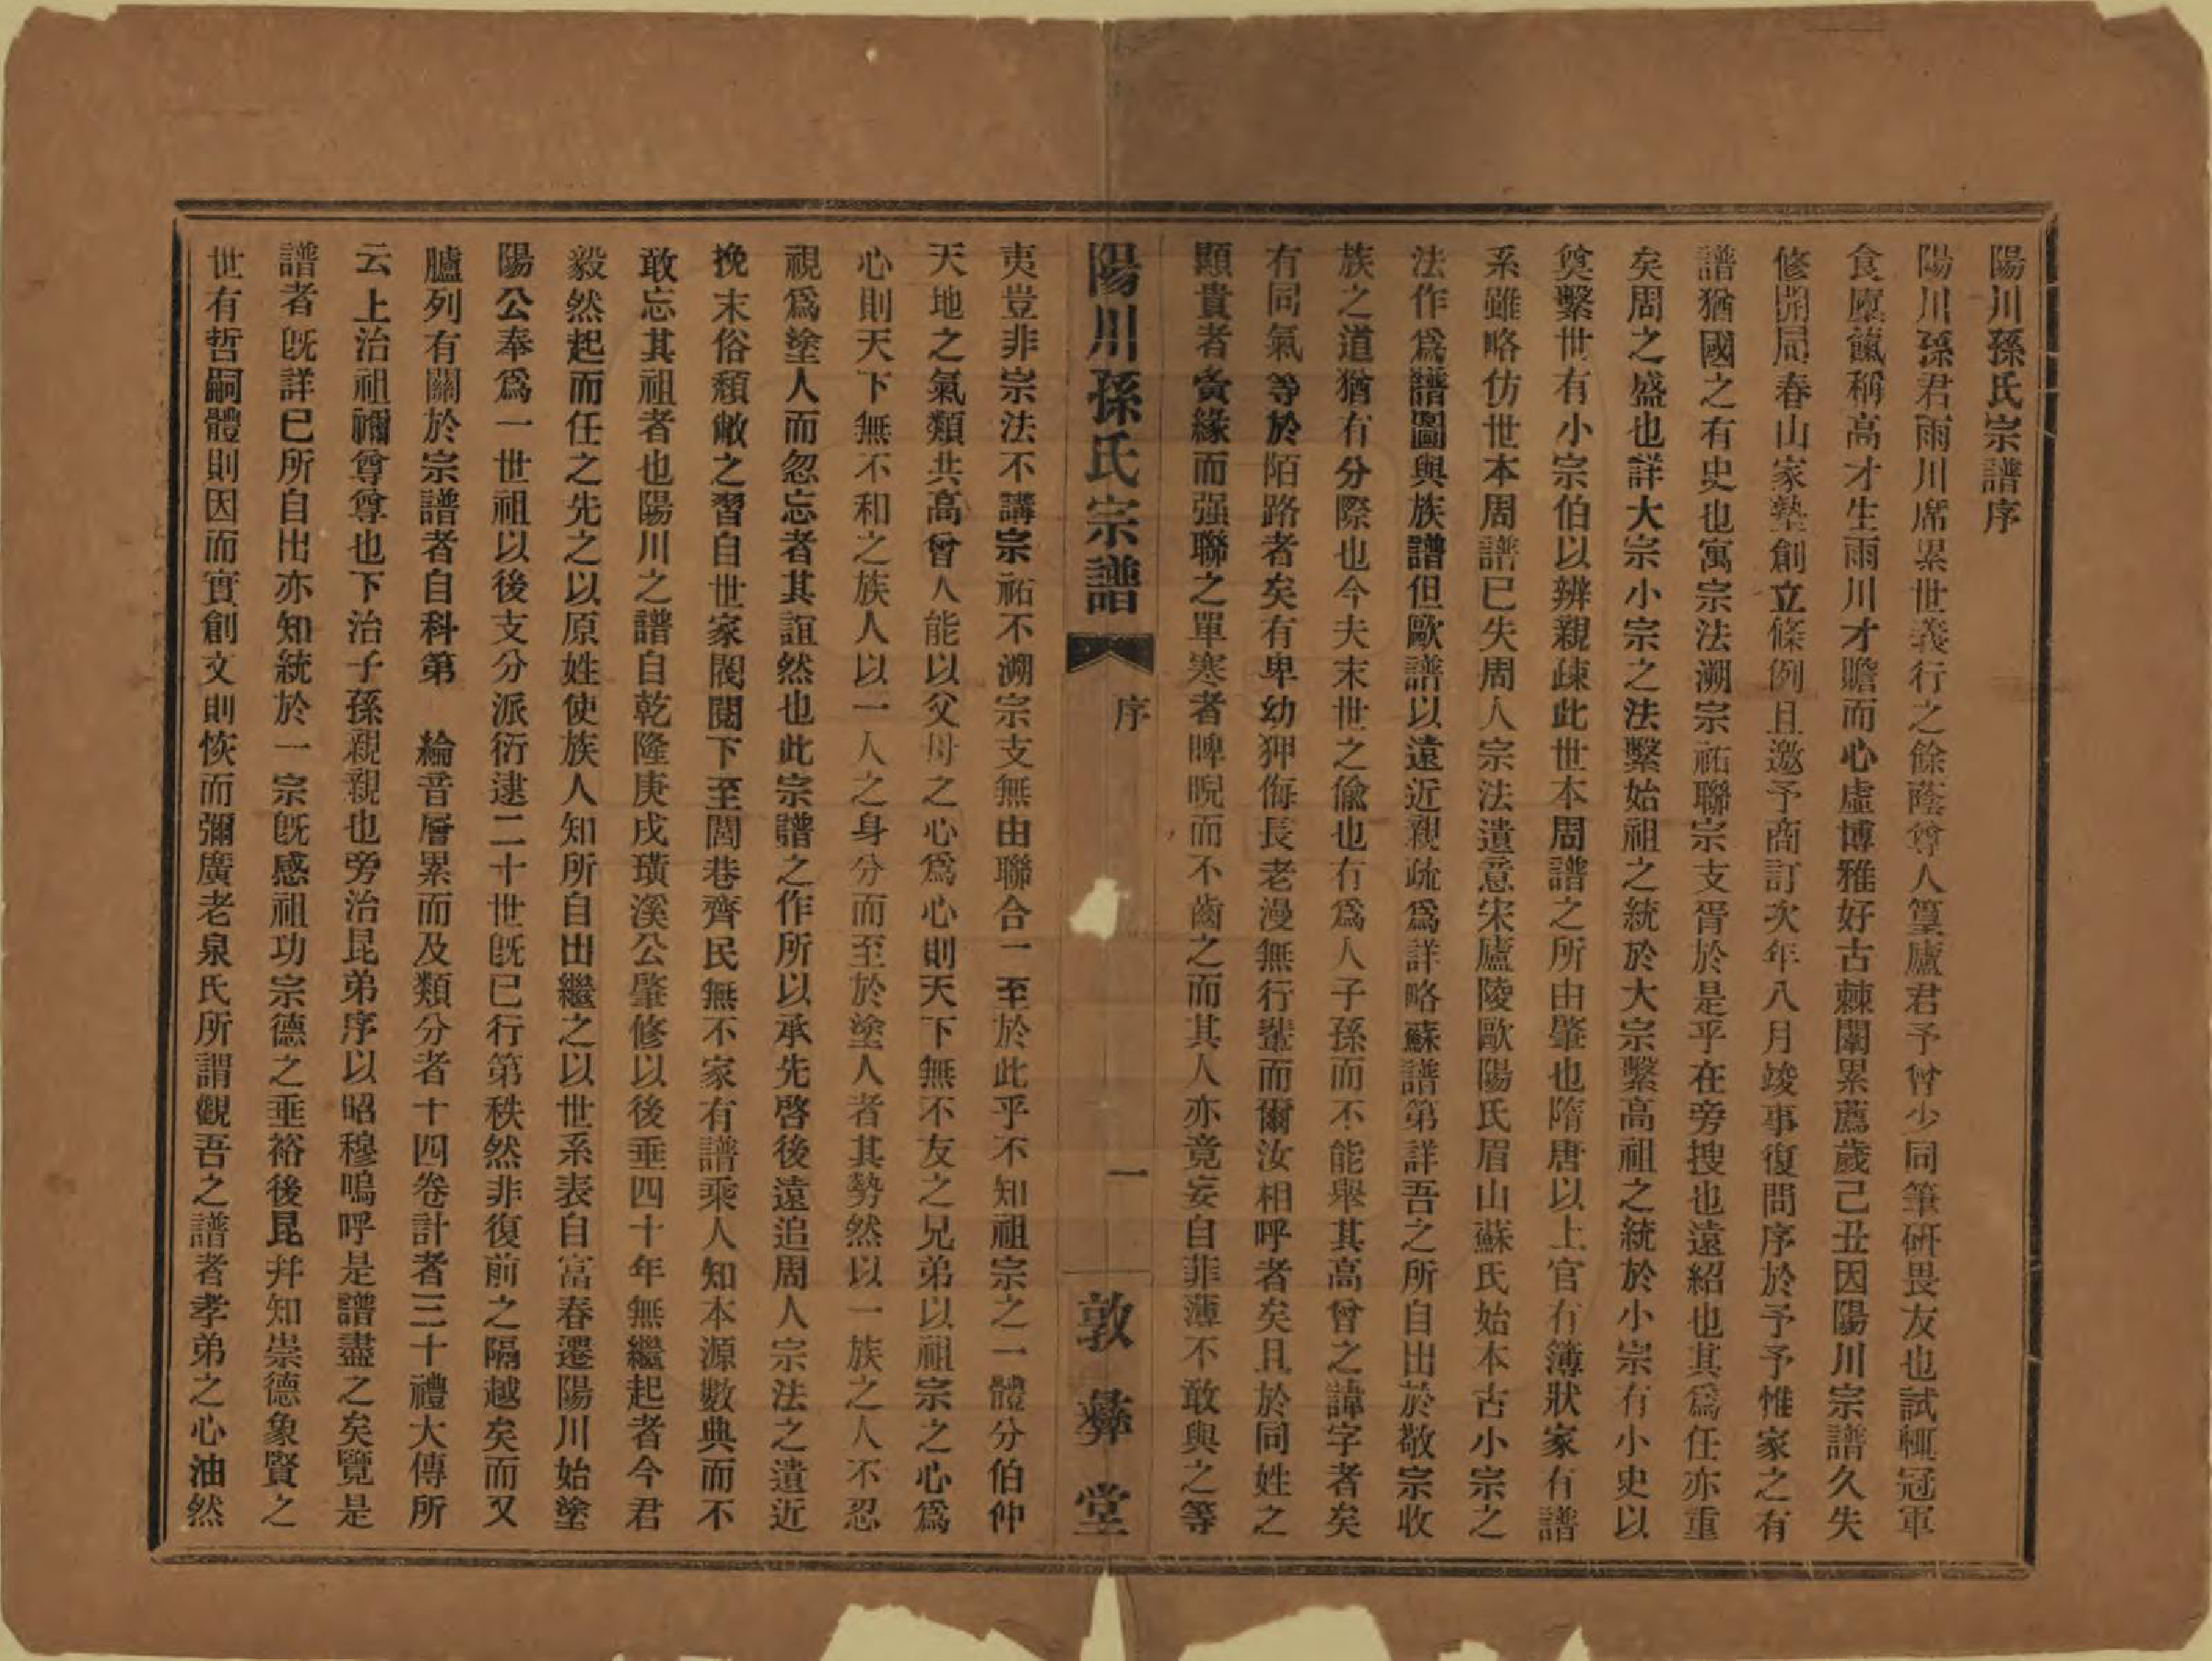 陽川孫氏宗譜序
陽川孫君雨川席累世義行之餘蔭尊人篁廬君予曾少同筆硏畏友也試輒冠軍
食廩餼稱高才生雨川才贍而心虛博雅好古棘闈累薦歲己丑因陽川宗譜久失
修開局春山家塾創立條例且邀予商訂次年八月竣事復問序於予予惟家之有
譜猶國之有史也寓宗法溯宗祐聯宗支胥於是乎在旁搜也遠紹也其爲任亦重
矣周之盛也詳大宗小宗之法繫始祖之統於大宗繫高祖之統於小宗有小史以
奠繫世有小宗伯以辨親疎此世本周譜之所由肇也隋唐以上官有簿狀家有譜
系雖略仿世本周譜已失周人宗法遺意宋廬陵歐陽氏眉山蘇氏始本古小宗之
法作爲譜圖與族譜但歐譜以遠近親疏爲詳略蘇譜第詳吾之所自出於敬宗收
族之道猶有分際也今夫末世之偷也有爲人子孫而不能舉其高曾之諱字者矣
有同氣等於陌路者矣有卑幼狎侮長老漫無行輩而爾汝相呼者矣且於同姓之
顯貴者夤緣而强聯之單寒者睥睨而不齒之而其人亦竟妄自菲薄不敢與之等
陽川孫氏宗譜 序 一 敦彝堂
夷豈非宗法不講宗祐不溯宗支無由聯合一至於此乎不知祖宗之一體分伯仲
天地之氣類共高曾人能以父母之心爲心則天下無不友之兄弟以祖宗之心爲
心則天下無不和之族人以一人之身分而至於塗人者其勢然以一族之人不忍
視爲塗人而忽忘者其誼然也此宗譜之作所以承先啓後遠追周人宗法之遺近
挽末俗頹敝之習自世家閥閱下至閭巷齊民無不家有譜乘人知本源數典而不
敢忘其祖者也陽川之譜自乾隆庚戌璜溪公肇修以後垂四十年無繼起者今君
毅然起而任之先之以原姓使族人知所自出繼之以世系表自富春遷陽川始塗
陽公奉爲一世祖以後支分派衍逮二十世旣已行第秩然非復前之隔越矣而又
臚列有關於宗譜者自科第 綸音層累而及類分者十四卷計者三十禮大傳所
云上治祖禰尊尊也下治子孫親親也旁治昆弟序以昭穆嗚呼是譜盡之矣覽是
譜者旣詳已所自出亦知統於一宗旣感祖功宗德之垂裕後昆幷知崇德象賢之
世有哲嗣體則因而實創文則恢而彌廣老泉氏所謂觀吾之譜者孝弟之心油然